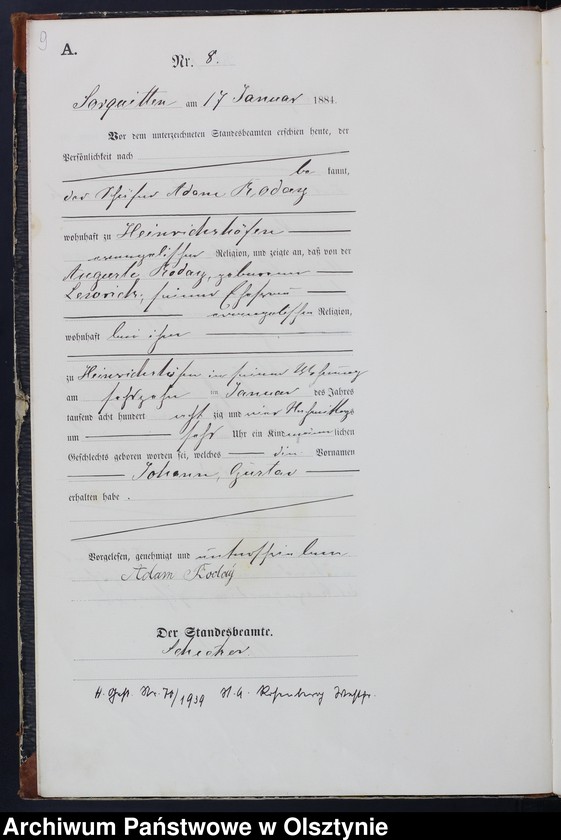 9
A.
Nr. 8.
Sorquitten am 17 Januar 1884.
Vor dem unterzeichneten Standesbeamten erschien heute, der
Persönlichkeit nach
be kannt,
der Schäfer Adam Koday
wohnhaft zu Heinrichshöfen
evangelischer Religion, und zeigte an, daß von der
Auguste Koday, geborene
seiner Ehefrau
evangelischer Religion,
wohnhaft bei ihm
zu Heinrichshöfen in seiner Wohnung
am sechszehn im Januar des Jahres
tausend acht hundert acht zig und vier Nachmittags
um sechs Uhr ein Kind männlichen
Geschlechts geboren worden sei, welches die Vornamen
Johann, Gustav
erhalten habe .
Vorgelesen, genehmigt und unterschrieben
Adam Koday
Der Standesbeamte.
H. Gest. Nr. 70/1939 St. A. Rosenberg Westpr.
Archiwum Państwowe w Olsztynie